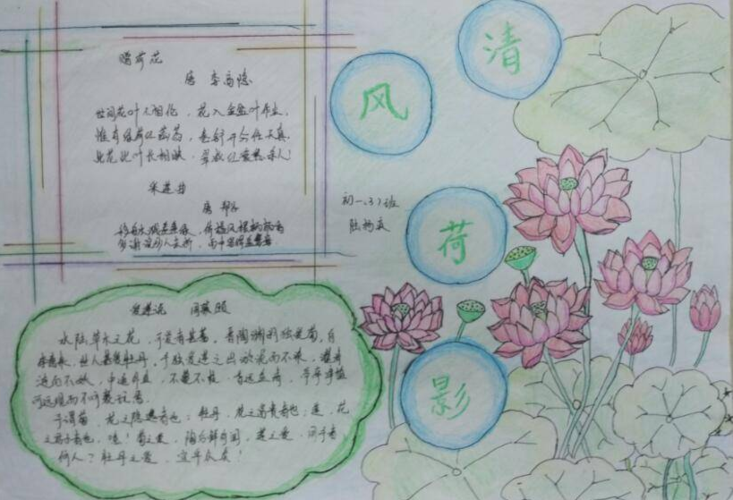 清
风
荷
影
赠荷花
唐 李商隐
世间花叶不相伦，花入金盆叶作尘。
惟有绿荷红菡萏，卷舒开合任天真。
此花此叶长相映，翠减红衰愁杀人！
唐 郑谷
移舟水溅差差绿，倚槛风摆柄柄香
多谢浣纱人未折，雨中留得盖鸳鸯
初一、(3)班
爱莲说 周敦颐
水陆草木之花，可爱者甚蕃。晋陶渊明独爱菊，自
李唐来，世人甚爱牡丹，予独爱莲之出淤泥而不染，濯清
涟而不妖，中通外直，不蔓不枝，香远益清，亭亭净植
可远观而不可亵玩焉。
予谓菊，花之隐逸者也；牡丹，花之富贵者也；莲，花
之君子者也。噫！菊之爱，陶后鲜有闻，莲之爱，同予者
何人？牡丹之爱，宜乎众矣！